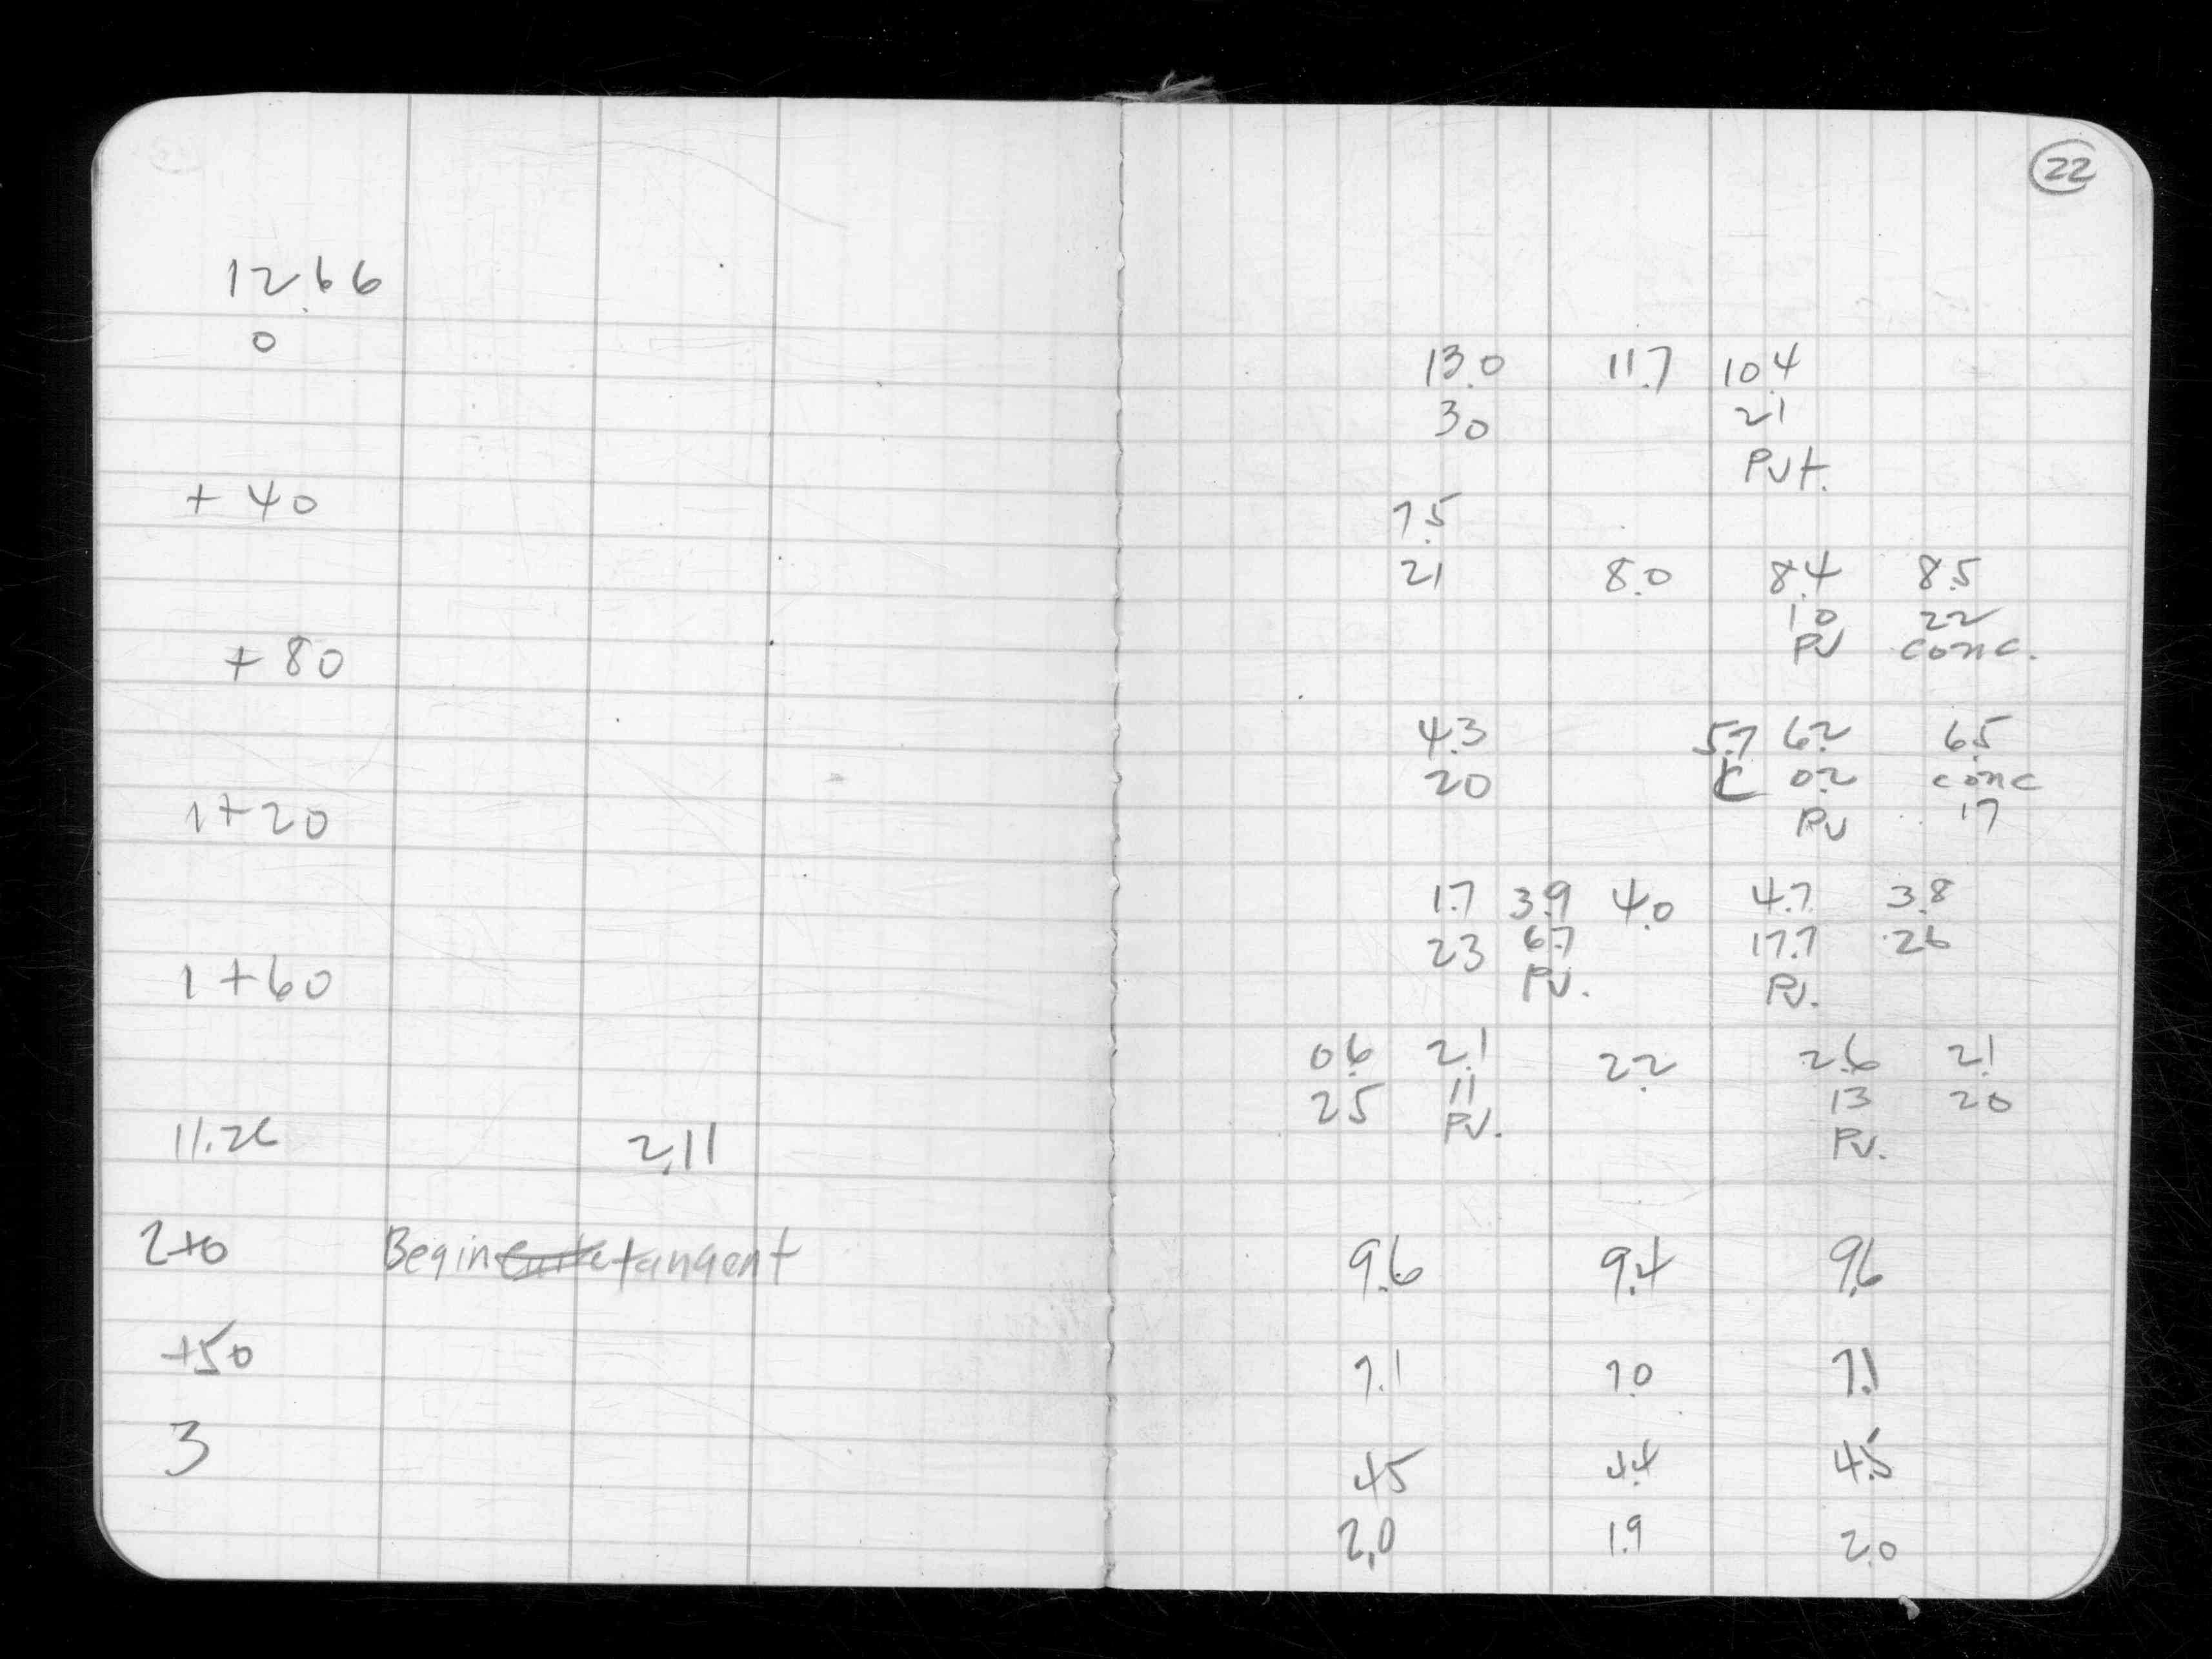 22
12.66
0
13.0 11.7 10.4
30 21
Pvt.
+ 40
7.5
21 8.0 8.4 8.5
10 22
PV conc.
+ 80
4.3 5.7 6.2 6.5
20 0.2 conc
PV 17
1+20
1.7 3.9 4.0 4.7 3.8
23 6.7 17.7 26
PV. PV.
1+60
0.6 2.1 2.2 2.6 2.1
25 11 13 20
PV. PV.
2.11
2+0 Begin tangent 9.6 9.4 9.6
+50 7.1 7.0 7.1
3 4.5 4.4 4.5
2.0 1.9 2.0